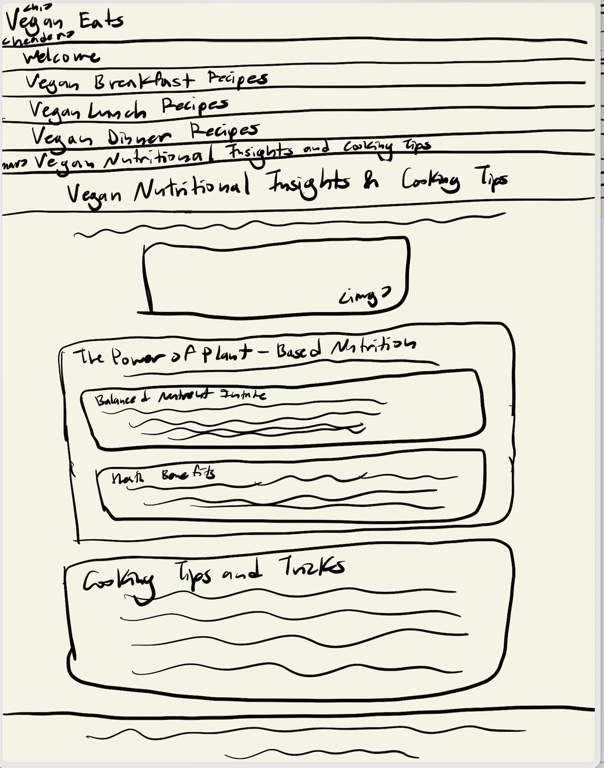 <h1>
Vegan Eats
<header>
Welcome
Vegan Breakfast Recipes
Vegan Lunch Recipes
Vegan Dinner Recipes
<nav> Vegan Nutritional Insights and Cooking Tips
Vegan Nutritional Insights & Cooking Tips
<img>
The Power of Plant - Based Nutrition
Balanced Nutrient Intake
Health Benefits
Cooking Tips and Tricks